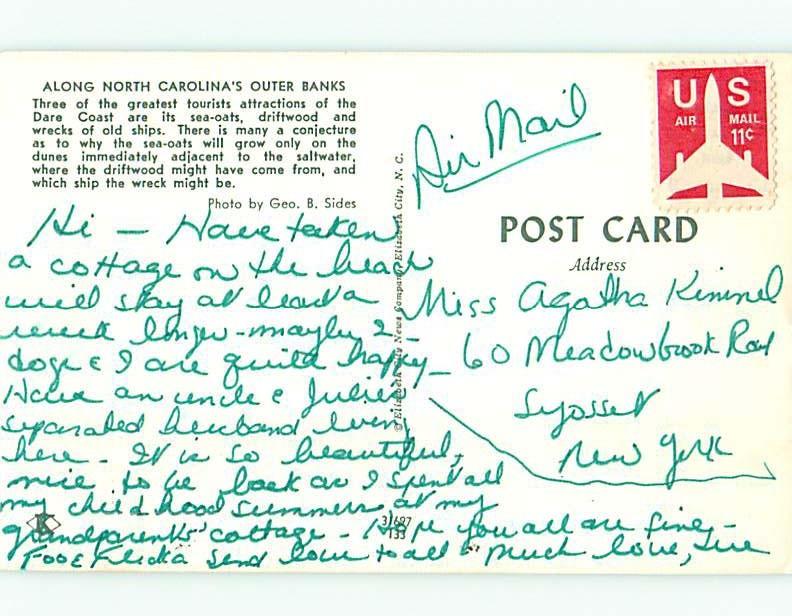 ALONG NORTH CAROLINA'S OUTER BANKS
Three of the greatest tourists attractions of the
Dare Coast are its sea-oats, driftwood and
wrecks of old ships. There is many a conjecture
as to why the sea-oats will grow only on the
dunes immediately adjacent to the saltwater,
where the driftwood might have come from, and
which ship the wreck might be.
Photo by Geo. B. Sides
Hi - Have taken
a cottage on the beach
will stay at least a
week longer - maybe 2 -
dogs & I are quite happy -
Have an uncle & Julie's
separated husband living
here. It is so beautiful,
nice to be back as I spent all
my childhood summers at my
grandparents' cottage - Hope you all are fine -
Foo & Flicka send love to all - Much love, Sue
K
31697
133
© Elizabeth City News Company, Elizabeth City, N. C.
Air Mail
US
AIR MAIL
11¢
POST CARD
Address
Miss Agatha Kimmel
60 Meadowbrook Road
Syosset
New York